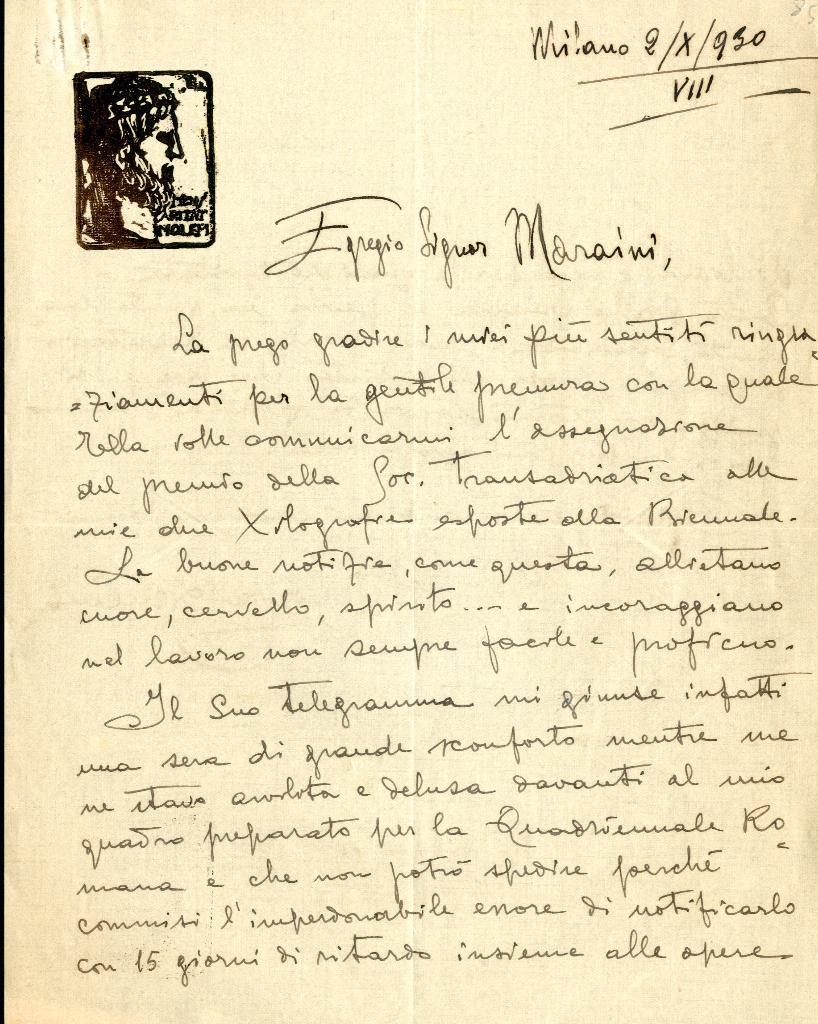 Milano 2/X/930
VIII
MENS
AGITAT
MOLEM
Egregio Signor Maraini,
La prego gradire i miei più sentiti ringra=
=ziamenti per la gentile premura con la quale
Ella volle comunicarmi l'assegnazione
del premio della Soc. Transadriatica alle
mie due Xilografie esposte alla Biennale.
Le buone notizie, come questa, allietano
cuore, cervello, spirito... e incoraggiano
nel lavoro non sempre facile e proficuo.
Il Suo telegramma mi giunse infatti
una sera di grande sconforto mentre me
ne stavo avvilita e delusa davanti al mio
quadro preparato per la Quadriennale Ro=
mana e che non potrò spedire perché
commisi l'imperdonabile errore di notificarlo
con 15 giorni di ritardo insieme alle opere